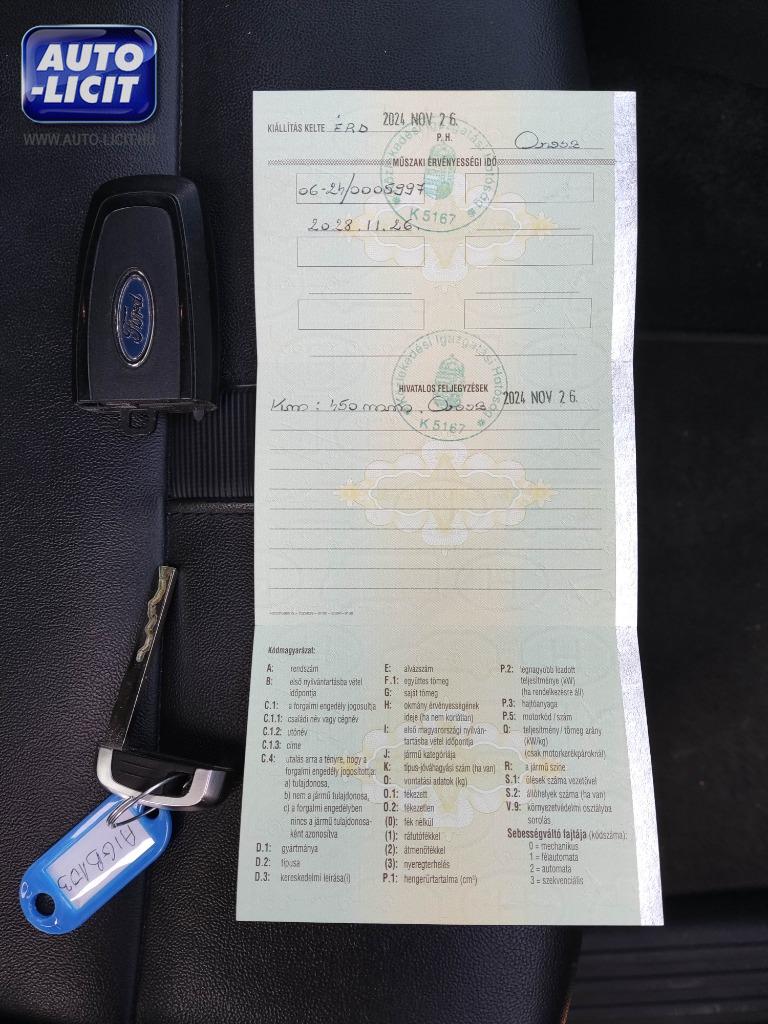 AUTO
-LICIT
WWW.AUTO-LICIT.HU
KIÁLLÍTÁS KELTE ÉRD 2024 NOV 26.
P. H.
MŰSZAKI ÉRVÉNYESSÉGI IDŐ
06-24/0005997
K 5167
2028.11.26.
Ford
Közlekedési Igazgatási Hatóság
HIVATALOS FELJEGYZÉSEK
2024 NOV 26.
K 5167
Kódmagyarázat:
A: rendszám
B: első nyilvántartásba vétel
időpontja
C.1: a forgalmi engedély jogosultja
C.1.1: családi név vagy cégnév
C.1.2: utónév
C.1.3: címe
C.4: utalás arra a tényre, hogy a
forgalmi engedély jogosítottja:
a) tulajdonosa,
b) nem a jármű tulajdonosa,
c) a forgalmi engedélyben
nincs a jármű tulajdonosa-
ként azonosítva
D.1: gyártmánya
D.2: típusa
D.3: kereskedelmi leírása(i)
E: alvázszám
F.1: együttes tömeg
G: saját tömeg
H: okmány érvényességének
ideje (ha nem korlátlan)
I: első magyarországi nyilván-
tartásba vétel időpontja
J: jármű kategóriája
K: típus-jóváhagyási szám (ha van)
O: vontatási adatok (kg)
O.1: fékezett
O.2: fékezetlen
(0): fék nélkül
(1): ráfutófékkel
(2): átmenőfékkel
(3): nyeregterhelés
P.1: hengerűrtartalma (cm³)
P.2: legnagyobb leadott
teljesítménye (kW)
(ha rendelkezésre áll)
P.3: hajtóanyaga
P.5: motorkód / szám
Q: teljesítmény / tömeg arány
(kW/kg)
(csak motorkerékpároknál)
R: a jármű színe
S.1: ülések száma vezetővel
S.2: állóhelyek száma (ha van)
V.9: környezetvédelmi osztályba
sorolás
Sebességváltó fajtája (kódszáma):
0 = mechanikus
1 = félautomata
2 = automata
3 = szekvenciális